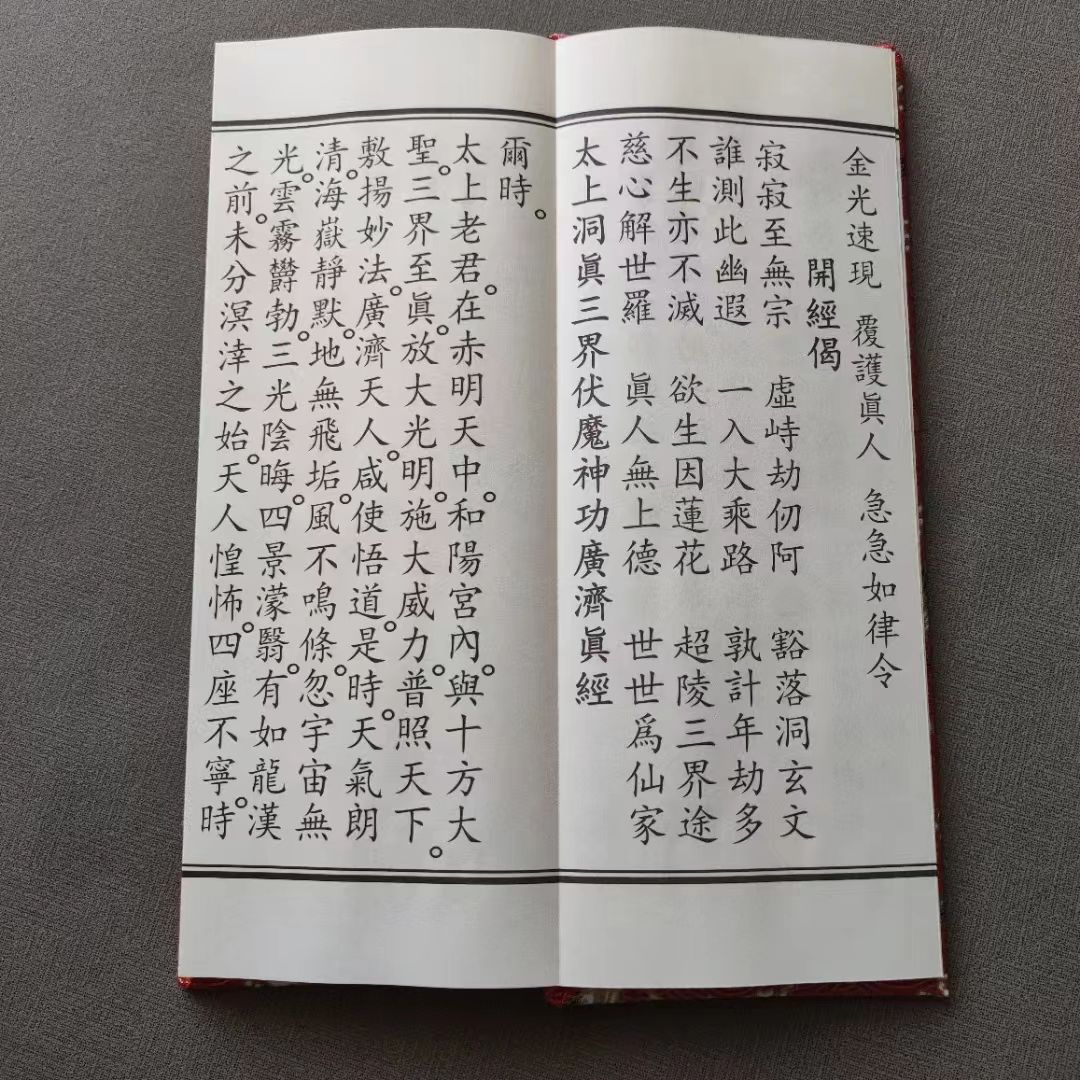 金光速現 覆護眞人 急急如律令
開經偈
寂寂至無宗 虛峙劫仞阿 豁落洞玄文
誰測此幽遐 一入大乘路 孰計年劫多
不生亦不滅 欲生因蓮花 超陵三界途
慈心解世羅 眞人無上德 世世爲仙家
太上洞眞三界伏魔神功廣濟眞經
爾時。
太上老君。在赤明天中。和陽宮內。與十方大
聖。三界至眞。放大光明。施大威力。普照天下。
敷揚妙法。廣濟天人。咸使悟道。是時。天氣朗
清。海嶽靜默。地無飛垢。風不鳴條。忽宇宙無
光。雲霧欝勃。三光陰晦。四景濛翳。有如龍漢
之前。未分溟涬之始。天人惶怖。四座不寧。時